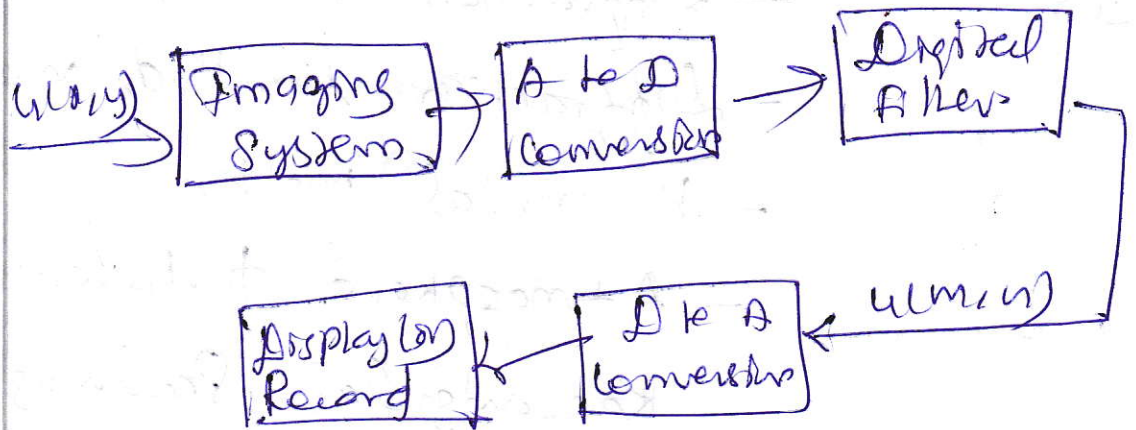 u(x,y)
Imaging
System
A to D
Conversion
Digital
filter
u(m,n)
D to A
Conversion
Display (or)
Record